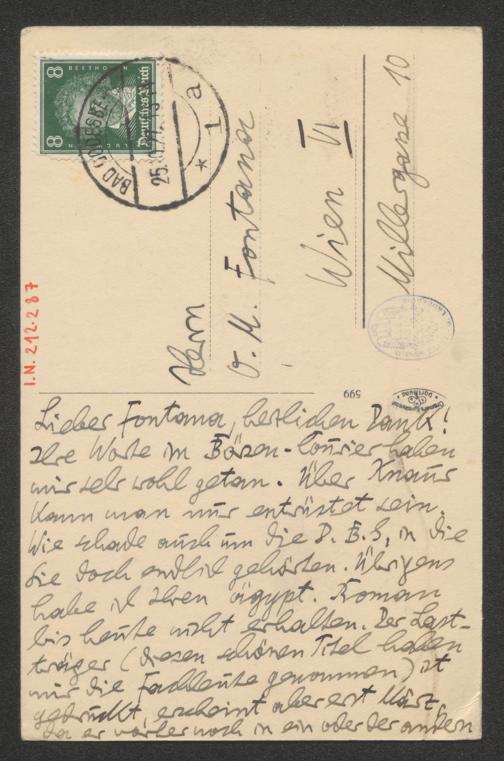 BEETHOVEN
8 Deutsches Reich 8
BAD GODESBERG
25.
* 1a
Herrn
O. M. Fontana
Wien VI
Millergasse 10
I.N. 212.287
599
Lieber Fontana, herzlichen Dank!
Ihre Worte im Börsen-Courier haben
mir sehr wohl getan. Über Knaur
kann man nur entrüstet sein.
Wie schade auch um die D. B. G, in die
Sie doch endlich gehörten. Übrigens
habe ich Ihren ägypt. Roman
bis heute nicht erhalten. Der Last-
träger (diesen schönen Titel haben
mir die Fachleute genommen) ist
gedruckt, erscheint aber erst März,
da er vorher noch in ein oder der andern